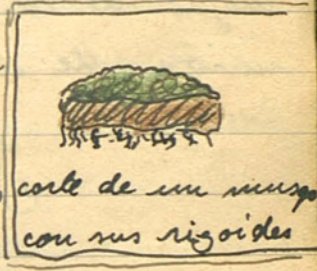 corte de un musgo
con sus rigoides